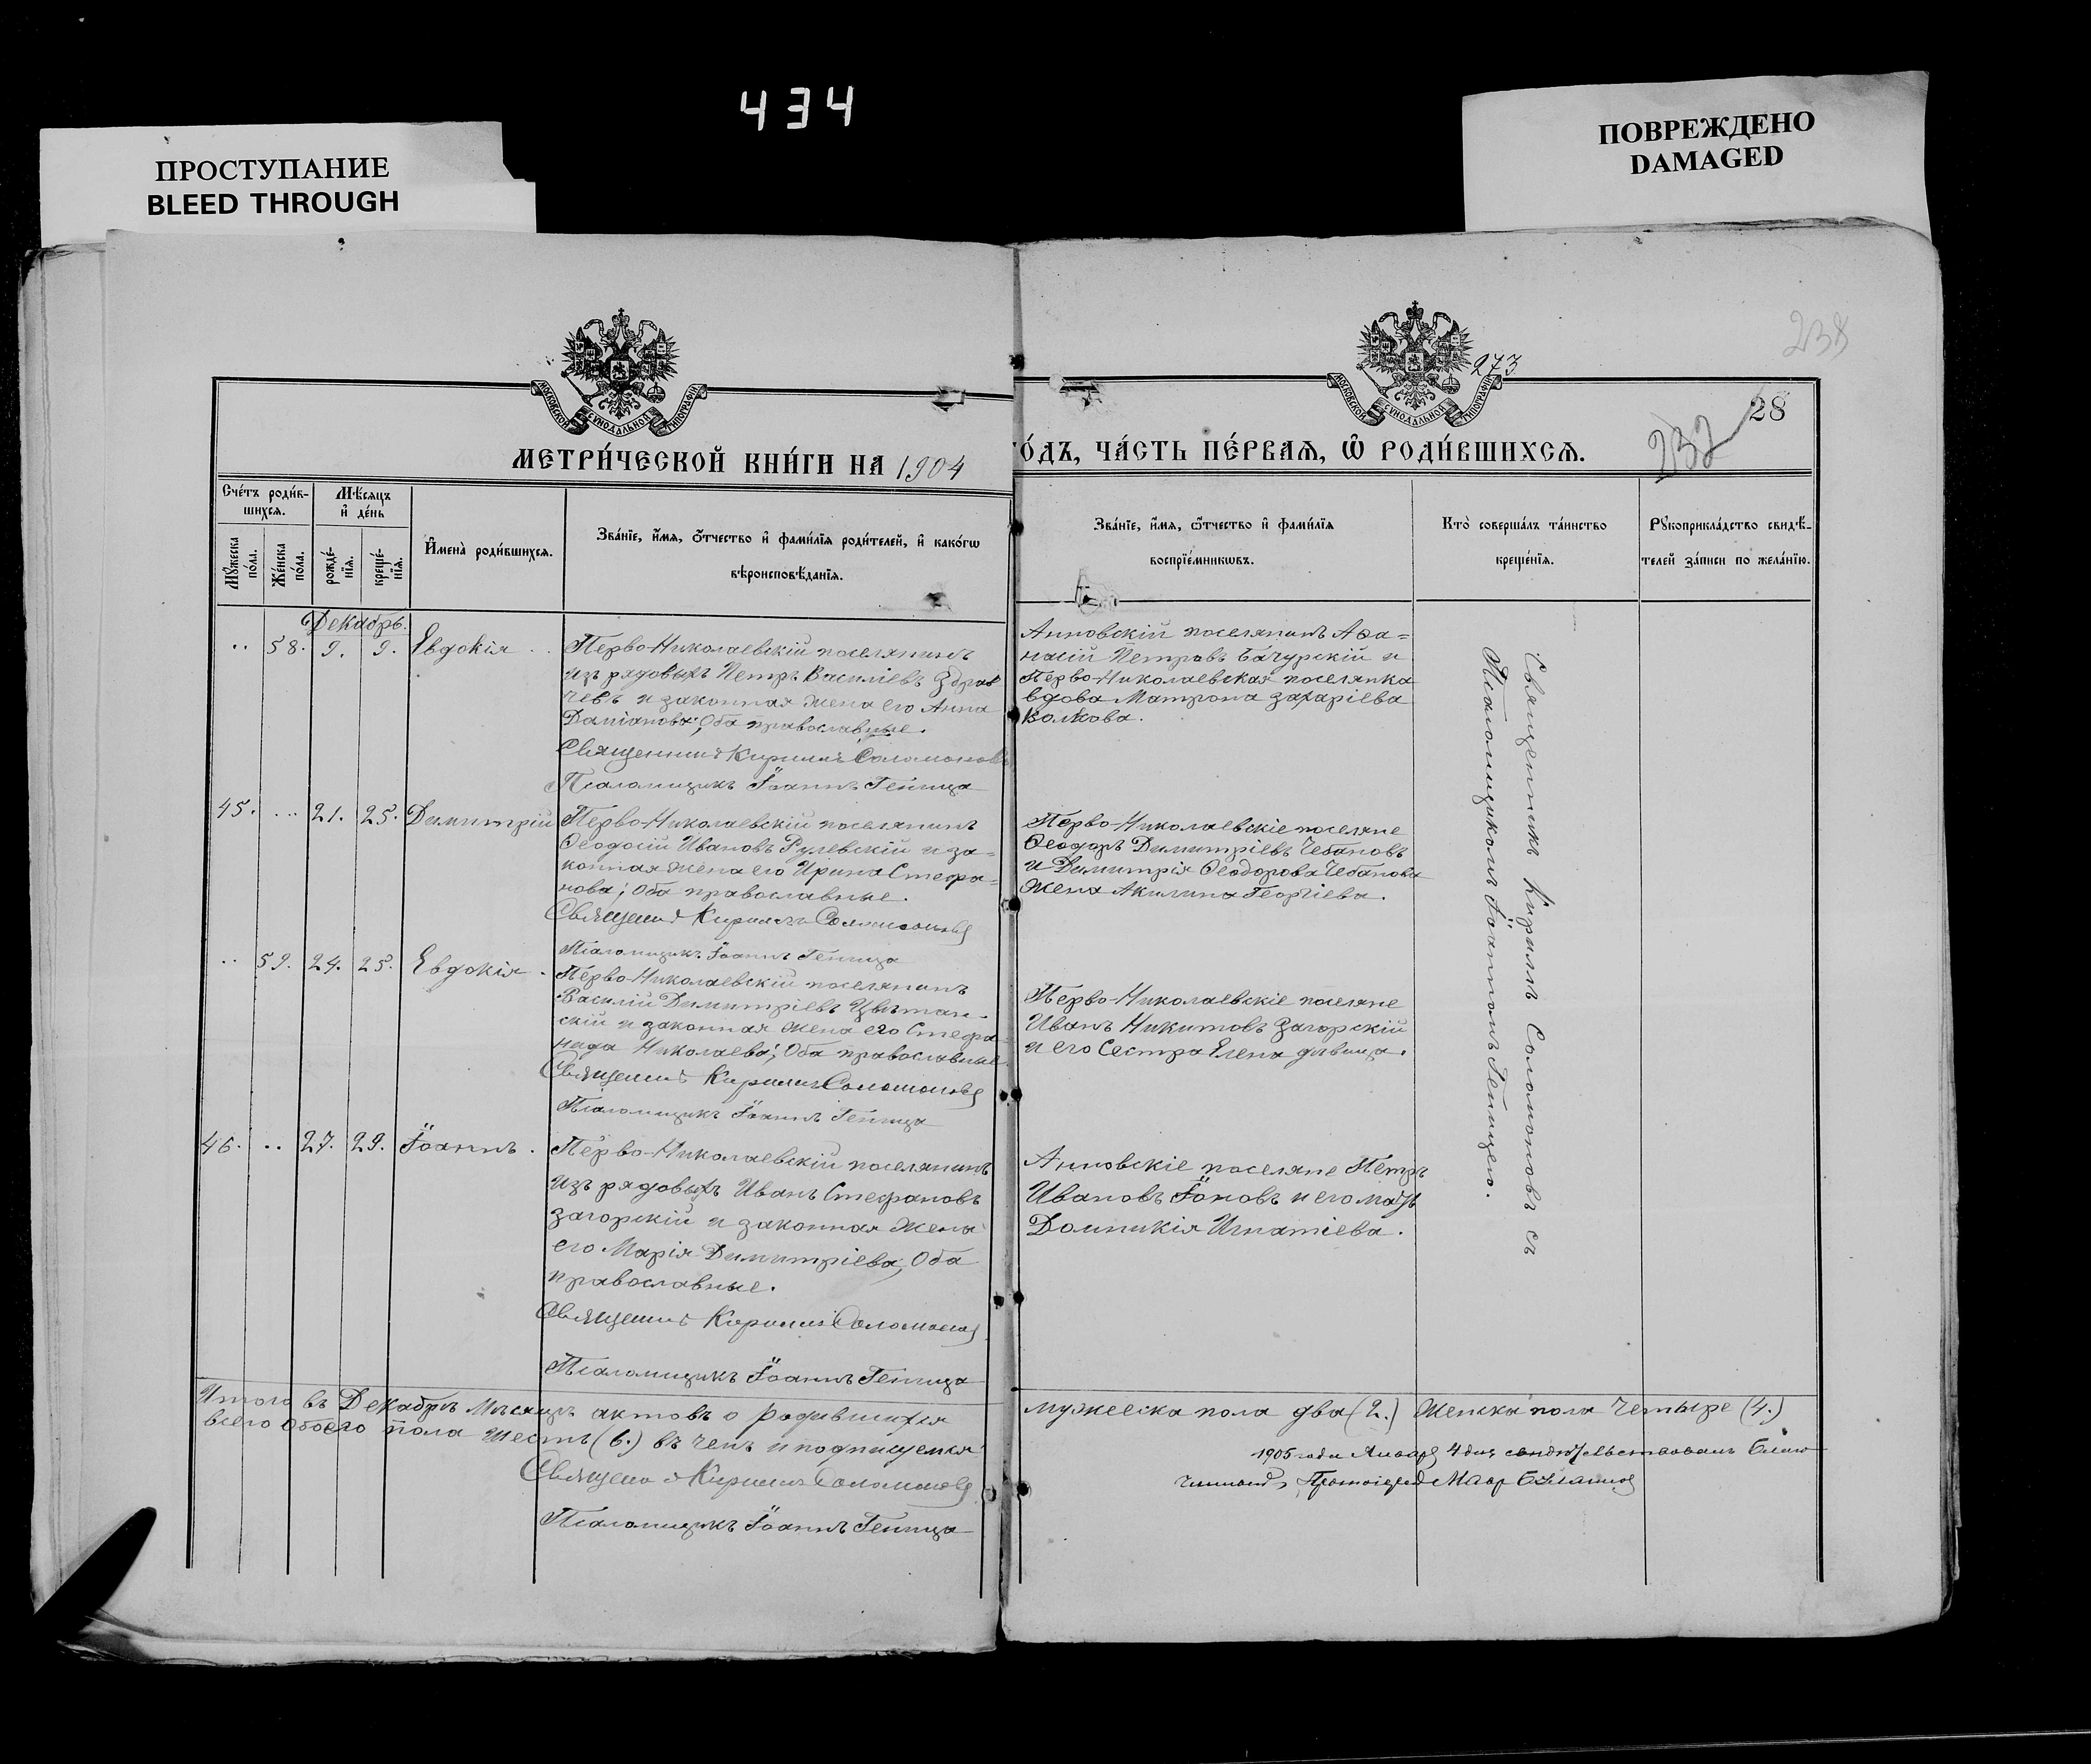 434
ПРОСТУПАНИЕ
BLEED THROUGH
ПОВРЕЖДЕНО
DAMAGED
238
273
28
232
МОСКОВСКОЙ СѴНОДАЛЬНОЙ ТИПОГРАФІИ
МОСКОВСКОЙ СѴНОДАЛЬНОЙ ТИПОГРАФІИ
МЕТРИ́ЧЕСКОЙ КНИ́ГИ НА 1904
ГО́ДЪ, ЧА́СТЬ ПЕ́РВАѦ, Ѿ РОДИ́ВШИХСѦ.
Сче́тъ роди́в-
шихсѧ.
Мѣ́сѧцъ
и҆ де́нь
Мꙋ́жеска
по́ла.
Же́нска
по́ла.
рожде́-
нїѧ.
креще́-
нїѧ.
И҆мена̀ роди́вшихсѧ.
Зва́нїе, и҆́мѧ, ѻ҆́тчество и҆ фами́лїѧ роди́телей, и҆ како́гѡ
вѣроисповѣ́данїѧ.
Зва́нїе, и҆́мѧ, ѻ҆́тчество и҆ фами́лїѧ
воспрїе́мникѡвъ.
Кто̀ соверша́лъ та́инство
креще́нїѧ.
Рꙋкоприкла́дство свидѣ́-
телей за́писи по жела́нїю.
Декабрь.
.. 58. 9. 9. Евдокія
Перво-Николаевскій поселянинъ
изъ рядовыхъ Петръ Василіевъ Здрав
чевъ и законная жена его Анна
Даміанова; Оба православные.
Священникъ Кириллъ Соломоновъ
Псаломщикъ Іоаннъ Генцица
Анновскій поселянинъ Аѳа=
насій Петровъ Бачурскій и
Перво-Николаевская поселянка
вдова Матрона Захаріева
Волкова.
45. ... 21. 25. Димитрій
Перво-Николаевскій поселянинъ
Ѳеодосій Ивановъ Рулевскій и за=
конная жена его Ирина Стефа=
нова; Оба православные.
Священникъ Кириллъ Соломоновъ
Псаломщикъ Іоаннъ Генцица
Перво-Николаевскіе поселяне
Ѳеодоръ Димитріевъ Чебановъ
и Димитрія Ѳеодорова Чебанова
жена Акилина Георгіева.
.. 59. 24. 25. Евдокія
Перво-Николаевскій поселянинъ
Василій Димитріевъ Цвѣтан-
скій и законная жена его Стефа=
нида Николаева; Оба православные
Священникъ Кириллъ Соломоновъ
Псаломщикъ Іоаннъ Генцица
Перво-Николаевскіе поселяне
Иванъ Никитовъ Загорскій
и его Сестра Елена дѣвица.
46. .. 27. 29. Іоаннъ.
Перво-Николаевскій поселянинъ
изъ рядовыхъ Иванъ Стефановъ
Загорскій и законная жена
его Марія Димитріева, Оба
православные.
Священникъ Кириллъ Соломоновъ
Псаломщикъ Іоаннъ Генцица
Анновскіе поселяне Петръ
Ивановъ Іоновъ и его мать
Домникія Игнатіева.
Священникъ Кириллъ Соломоновъ съ
Псаломщикомъ Іоанномъ Генцицею.
Итого въ Декабрѣ мѣсяцѣ актовъ о родившихся
мужеска пола два (2.) Женска пола Четыре (4.)
всего обоего пола шесть (6.) въ чемъ и подписуемся
Священникъ Кириллъ Соломоновъ
Псаломщикъ Іоаннъ Генцица
1905 года Января 4 дня свидѣтельствовалъ Благо
чинный, Протоіерей